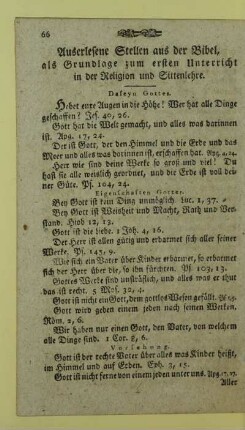 66
Auserlesene Stellen aus der Bibel,
als Grundlage zum ersten Unterricht
in der Religion und Sittenlehre.
Daseyn Gottes.
Hebet eure Augen in die Höhe! Wer hat alle Dinge
geschaffen? Jes. 40, 26.
Gott hat die Welt gemacht, und alles was darinnen
ist. Apg. 17, 24.
Der ist Gott, der den Himmel und die Erde und das
Meer und alles was darinnen ist, erschaffen hat. Apg. 4, 24.
Herr wie sind deine Werke so gros und viel! Du
hast sie alle weislich geordnet, und die Erde ist voll dei-
ner Güte. Ps. 104, 24.
Eigenschaften Gottes.
Bey Gott ist kein Ding unmöglich. Luc. 1, 37.
Bey Gott ist Weisheit und Macht, Rath und Ver-
stand. Hiob 12, 13.
Gott ist die Liebe. 1 Joh. 4, 16.
Der Herr ist allen gütig und erbarmet sich aller seiner
Werke. Ps. 145, 9.
Wie sich ein Vater über Kinder erbarmet, so erbarmet
sich der Herr über die, so ihn fürchten. Ps. 103, 13.
Gottes Werke sind unsträflich, und alles was er thut
das ist recht. 5 Mos. 32, 4.
Gott ist nicht ein Gott, dem gottlos Wesen gefällt. Ps. 5, 5.
Gott wird geben einem jeden nach seinen Werken.
Röm. 2, 6.
Wir haben nur einen Gott, den Vater, von welchem
alle Dinge sind. 1 Cor. 8, 6.
Vorsehung.
Gott ist der rechte Vater über alles was Kinder heißt,
im Himmel und auf Erden. Eph. 3, 15.
Gott ist nicht ferne von einem jeden unter uns. Apg. 17, 27.
Aller